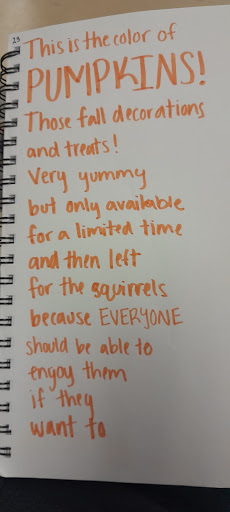 23
This is the color of
PUMPKINS!
Those fall decorations
and treats!
Very yummy
but only available
for a limited time
and then left
for the squirrels
because EVERYONE
should be able to
engoy them
if they
want to